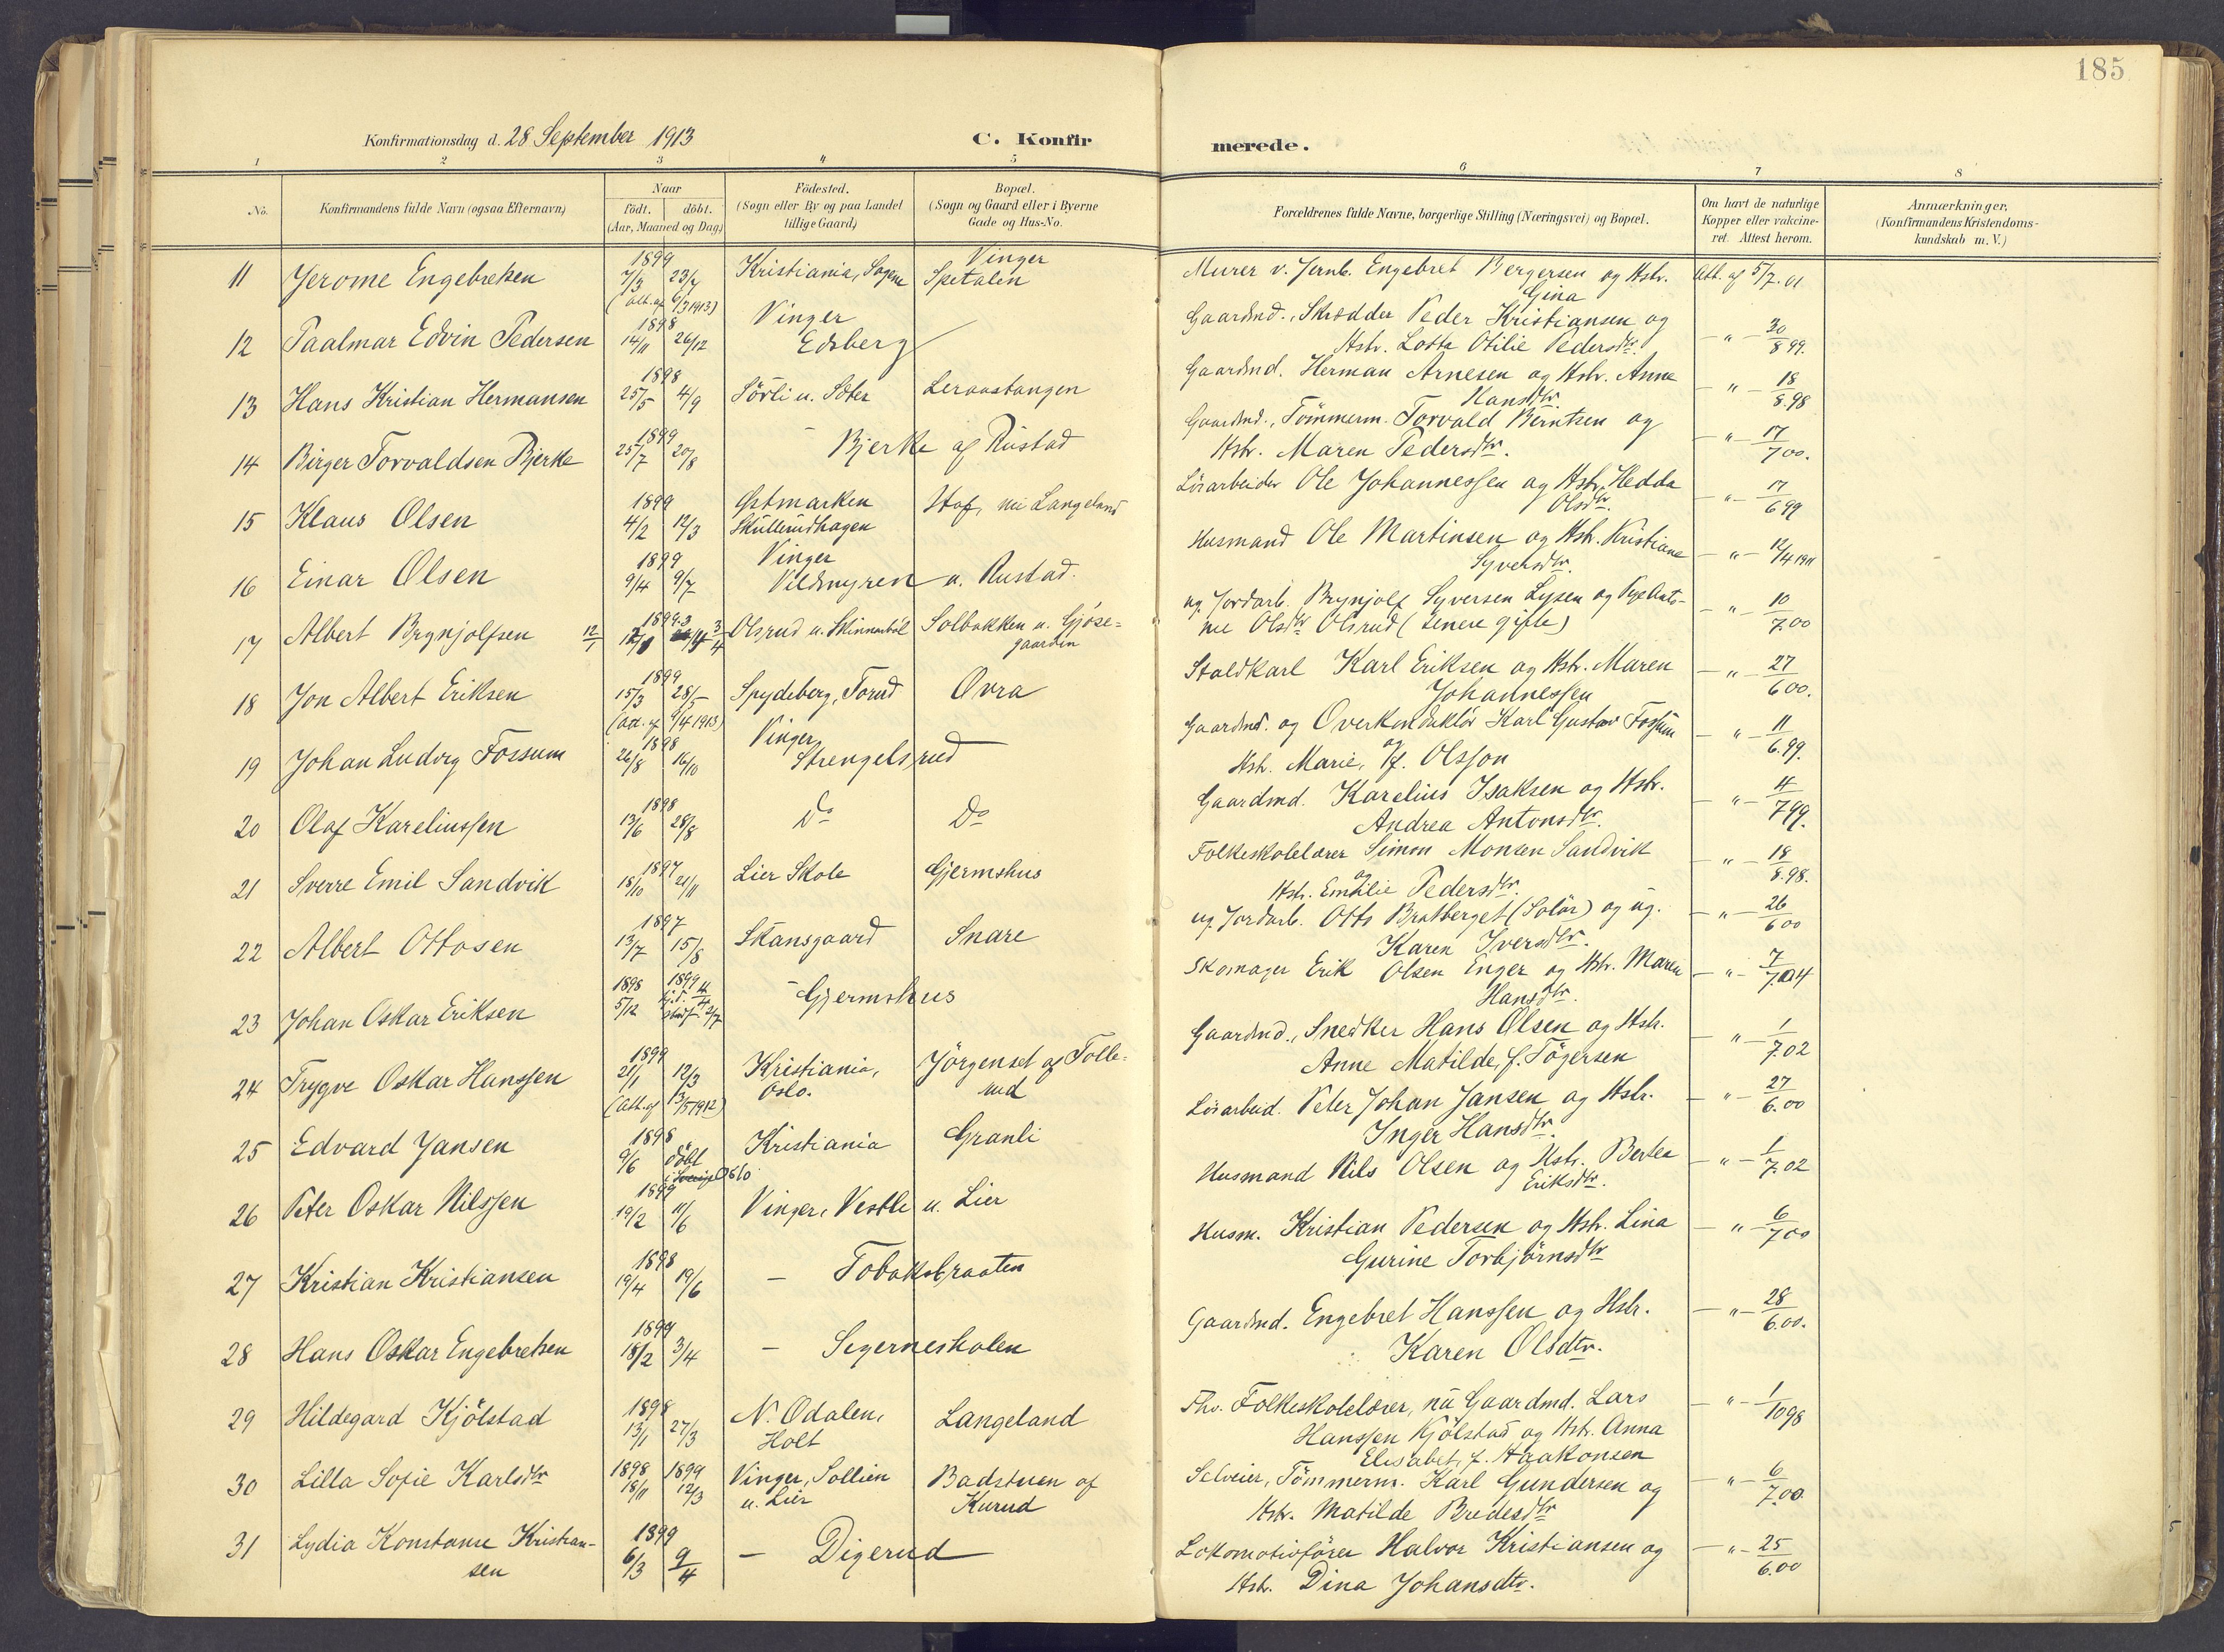 185
Konfirmationsdag d. 28 September 1913
C. Konfirmerede.
1 2 3 4 5 6 7 8
No.
Konfirmandens fulde Navn (ogsaa Efternavn)
Naar
födt. döbt.
(Aar, Maaned og Dag)
Födested.
(Sogn eller By og paa Landet
tillige Gaard)
Bopæl.
(Sogn og Gaard eller i Byerne
Gade og Hus-No.
Forældrenes fulde Navne, borgerlige Stilling (Næringsvei) og Bopæl.
Om havt de naturlige
Kopper eller vakcine-
ret. Attest herom.
Anmærkninger.
(Konfirmandens Kristendoms-
kundskab m. V.)
11 Jerome Engebretsen 1899 7/3 23/7 Kristiania, Sagene Vinger Spetalen
(Att. af 6/3 1913)
Murer v. Jernb. Engebret Bergersen og Hstr. Gina
Att. af 5/7.01
12 Paalmar Edvin Pedersen 1898 14/11 26/12 Vinger Edsberg
Gaardmd., Skrædder Peder Kristiansen og
Hstr. Lotta Otilie Pedersdtr.
— " — 30/8 99.
13 Hans Kristian Hermansen 1898 25/5 4/9 Sörli u. Sæter Leraastangen
Gaardmd. Herman Arnesen og Hstr. Anne
Hansdtr.
— " — 18/8.98
14 Birger Torvaldsen Bjerke 1899 25/7 20/8 — Bjerke af Rustad
Gaardmd., Tömmerm. Torvald Berntsen og
Hstr. Maren Pedersdtr.
— " — 17/7 00.
15 Klaus Olsen 1899 4/2 12/3 Østmarken Skullerudhagen Hof, nu Langeland
Lösarbeider Ole Johannessen og Hstr. Hedda
Olsdtr.
— " — 17/6 99
16 Einar Olsen 1899 9/4 9/7 Vinger Vildmyren u. Rustad.
Husmand Ole Martinsen og Hstr. Kristiane
Syversdtr.
— " — 12/4 1911
17 Albert Brynjolfsen 12/1 1899 3/4 Olsrud u. Skinnarböl Solbakken u. Gjöse-
gaarden
ug. Jordarb. Brynjolf Syversen Lysen og Pige Anto-
nie Olsdtr. Olsrud (senere gifte)
— " — 10/7.00
18 Jon Albert Eriksen 1899 15/3 28/5 Spydeberg, Torud Øvra
(Att. af 9/4 1913)
Staldkarl Karl Eriksen og Hstr. Maren
Johannessen
— " — 27/6 00.
19 Johan Ludvig Fossum 1898 26/8 16/10 Vinger Strengelsrud
Gaardmd. og Overkonduktör Karl Gustav Fossum
og Hstr. Marie, f. Olsson
— " — 11/6.99.
20 Olaf Kareliussen 1898 13/6 28/8 Do Do
Gaardmd. Karelius Isaksen og Hstr.
Andrea Antonsdtr.
— " — 4/7 99.
21 Sverre Emil Sandvik 1897 18/10 21/11 Lier Skole Gjermshus
Folkeskolelærer Simon Monsen Sandvik
og Hstr. Emilie Pedersdtr.
— " — 18/8.98.
22 Albert Ottosen 1897 13/7 15/8 Skansgaard Snare
ug. Jordarb. Otto Bratberget (Solör) og ug.
Karen Iversdtr.
— " — 26/6 00
23 Johan Oskar Eriksen 1898 5/12 1899 hj.d. 4/4 stadf. 2/7 — Gjermshus
Skomager Erik Olsen Enger og Hstr. Maren
Hansdtr.
— " — 7/7.04
24 Trygve Oskar Hanssen 1899 21/1 12/3 Kristiania, Oslo. Jörgenset af Tolle-
rud
(Att. af 13/5 1912)
Gaardmd., Snedker Hans Olsen og Hstr.
Anne Matilde, f. Tögersen
— " — 1/7.02
25 Edvard Jansen 1898 9/6 döbt i Sverige Oslo Kristiania Granli
Lösarbeid. Peter Johan Jansen og Hstr.
Inger Hansdtr.
— " — 27/6.00
26 Peter Oskar Nilssen 1899 19/2 11/6 Vinger, Vestli u. Lier
Husmand Nils Olsen og Hstr. Bertea
Eriksdtr.
— " — 1/7.02
27 Kristian Kristiansen 1898 19/4 19/6 — Tobaksbraaten
Husm. Kristian Pedersen og Hstr. Lina
Gurine Torbjörnsdtr.
— " — 6/7 00
28 Hans Oskar Engebretsen 1899 18/2 3/4 — Segerneskolen
Gaardmd. Engebret Hanssen og Hstr.
Karen Olsdtr.
— " — 28/6.00.
29 Hildegard Kjölstad 1898 13/1 27/3 N. Odalen, Holt Langeland
Fhv. Folkeskolelærer, nu Gaardmd. Lars
Hanssen Kjölstad og Hstr. Anna
Elisabet, f. Haakonsen
— " — 1/10 98
30 Lilla Sofie Karlsdtr. 1898 18/11 1899 12/3 Vinger, Sollien u. Lier Badstuen af
Kurud
Selveier, Tömmerm. Karl Gundersen og
Hstr. Matilde Bredesdtr.
— " — 6/7.00
31 Lydia Konstanse Kristian-
sen 1899 6/3 9/4 — Digerud
Lokomotivförer Halvor Kristiansen og
Hstr. Dina Johansdtr.
— " — 25/6.00